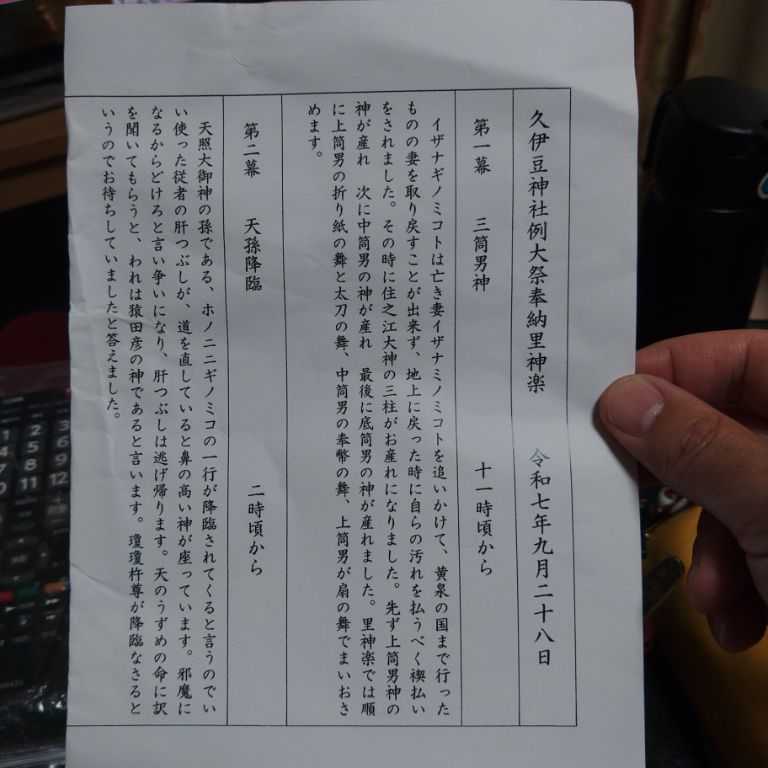 久伊豆神社例大祭奉納里神楽　令和七年九月二十八日
第一幕　三筒男神　十一時頃から
イザナギノミコトは亡き妻イザナミノミコトを追いかけて、黄泉の国まで行った
ものの妻を取り戻すことが出来ず、地上に戻った時に自らの汚れを払うべく禊払い
をされました。その時に住之江大神の三柱がお産れになりました。先ず上筒男神の
神が産れ　次に中筒男の神が産れ　最後に底筒男の神が産れました。里神楽では順
に上筒男の折り紙の舞と太刀の舞、中筒男の奉幣の舞、上筒男が扇の舞でまいおさ
めます。
第二幕　天孫降臨　二時頃から
天照大御神の孫である、ホノニニギノミコの一行が降臨されてくると言うのでい
い使った従者の肝つぶしが、道を直していると鼻の高い神が座っています。邪魔に
なるからどけろと言い争いになり、肝つぶしは逃げ帰ります。天のうずめの命に訳
を聞いてもらうと、われは猿田彦の神であると言います。瓊瓊杵尊が降臨なさると
いうのでお待ちしていましたと答えました。
1 2 3
4 5 6
7 8 9
10 11 12